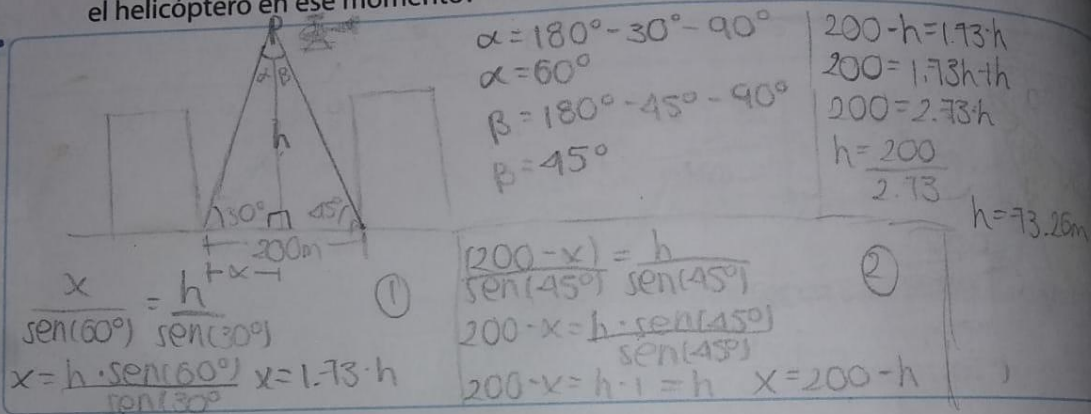 el helicóptero en ese momento.
α β
h
30° 45°
200m
x
α = 180° - 30° - 90°
α = 60°
β = 180° - 45° - 90°
β = 45°
200 - h = 1.73·h
200 = 1.73h + h
200 = 2.73·h
h = 200
2.73
h = 73.26m
x = h
sen(60°) sen(30°)
①
x = h · sen(60°) x = 1.73·h
sen(30°
(200 - x) = h
sen(45°) sen(45°)
②
200 - x = h · sen(45°)
sen(45°)
200 - x = h · 1 = h x = 200 - h